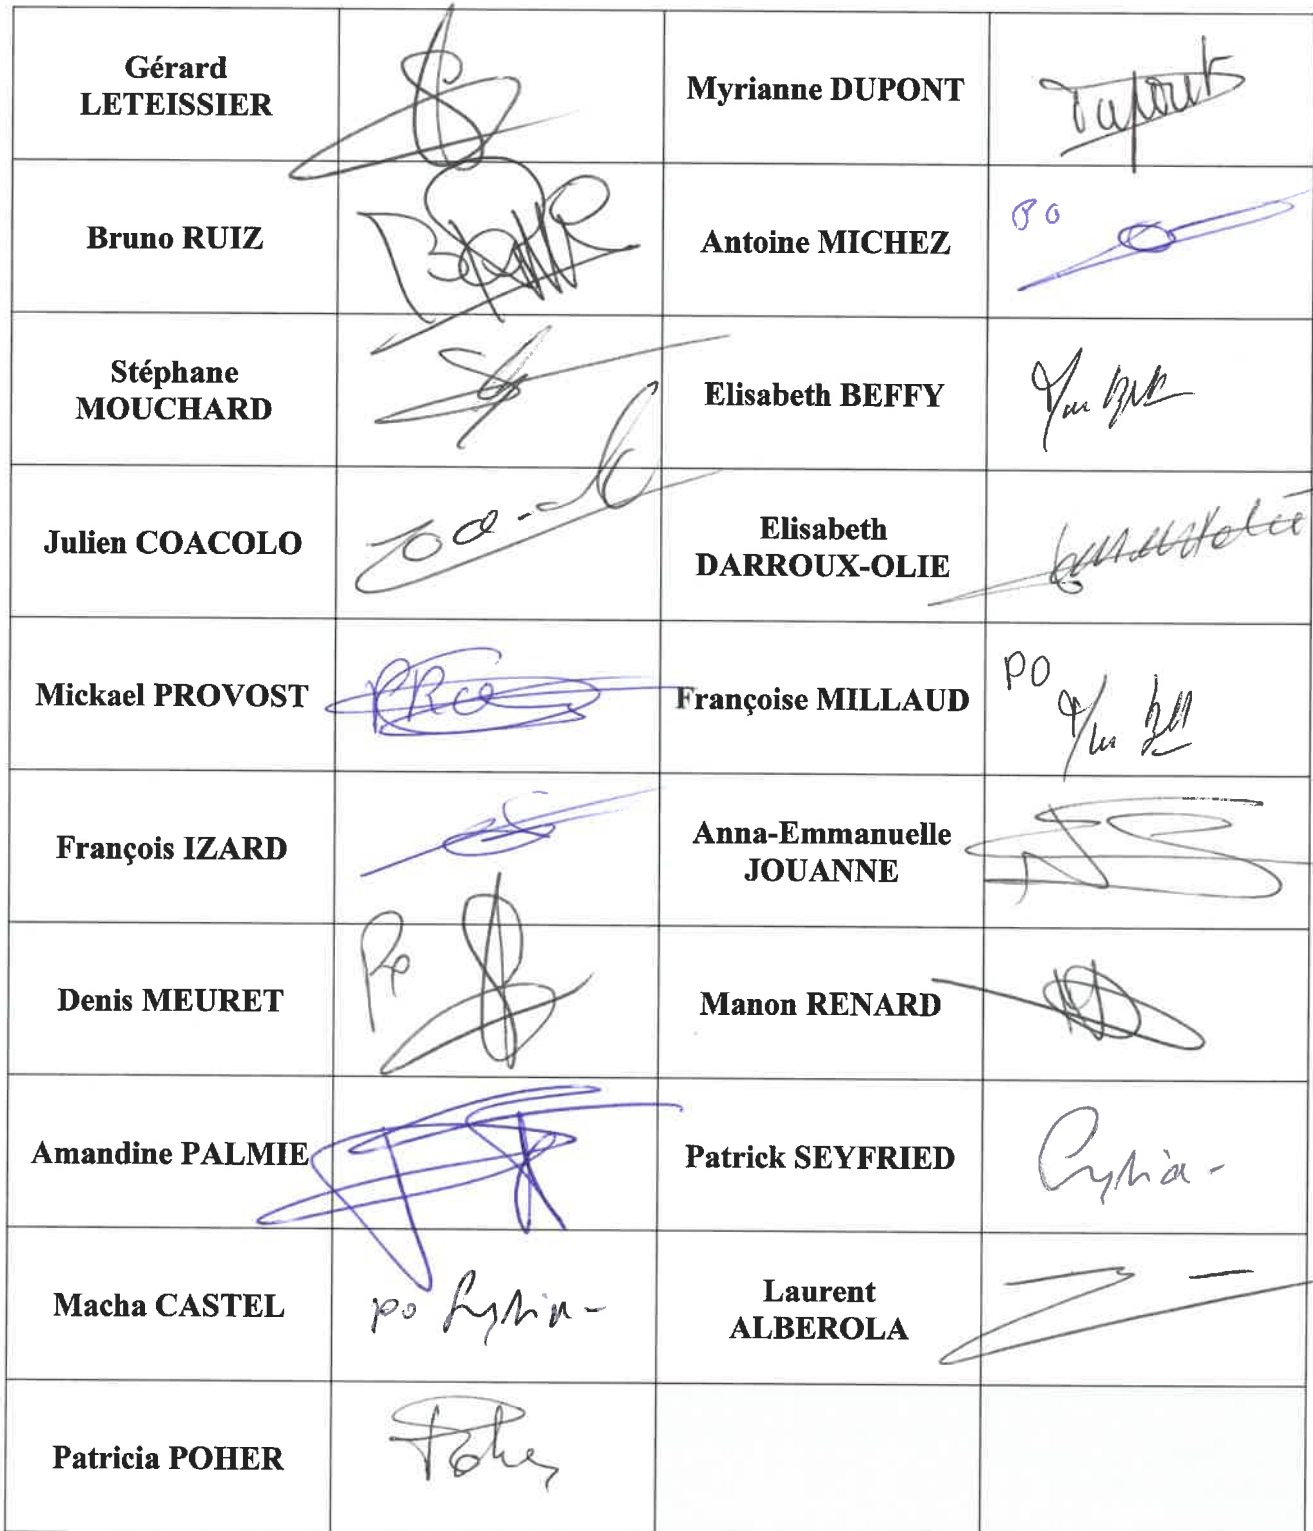 Gérard
LETEISSIER
Myrianne DUPONT
Dupont
Bruno RUIZ
Antoine MICHEZ
PO
Stéphane
MOUCHARD
Elisabeth BEFFY
Julien COACOLO
Elisabeth
DARROUX-OLIE
Mickael PROVOST
PRO
Françoise MILLAUD
PO
François IZARD
Anna-Emmanuelle
JOUANNE
Denis MEURET
Po
Manon RENARD
Amandine PALMIE
Patrick SEYFRIED
Macha CASTEL
po
Laurent
ALBEROLA
Patricia POHER
Poher